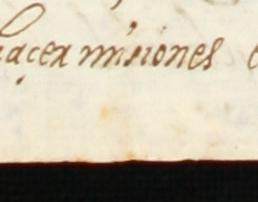 haçer misiones